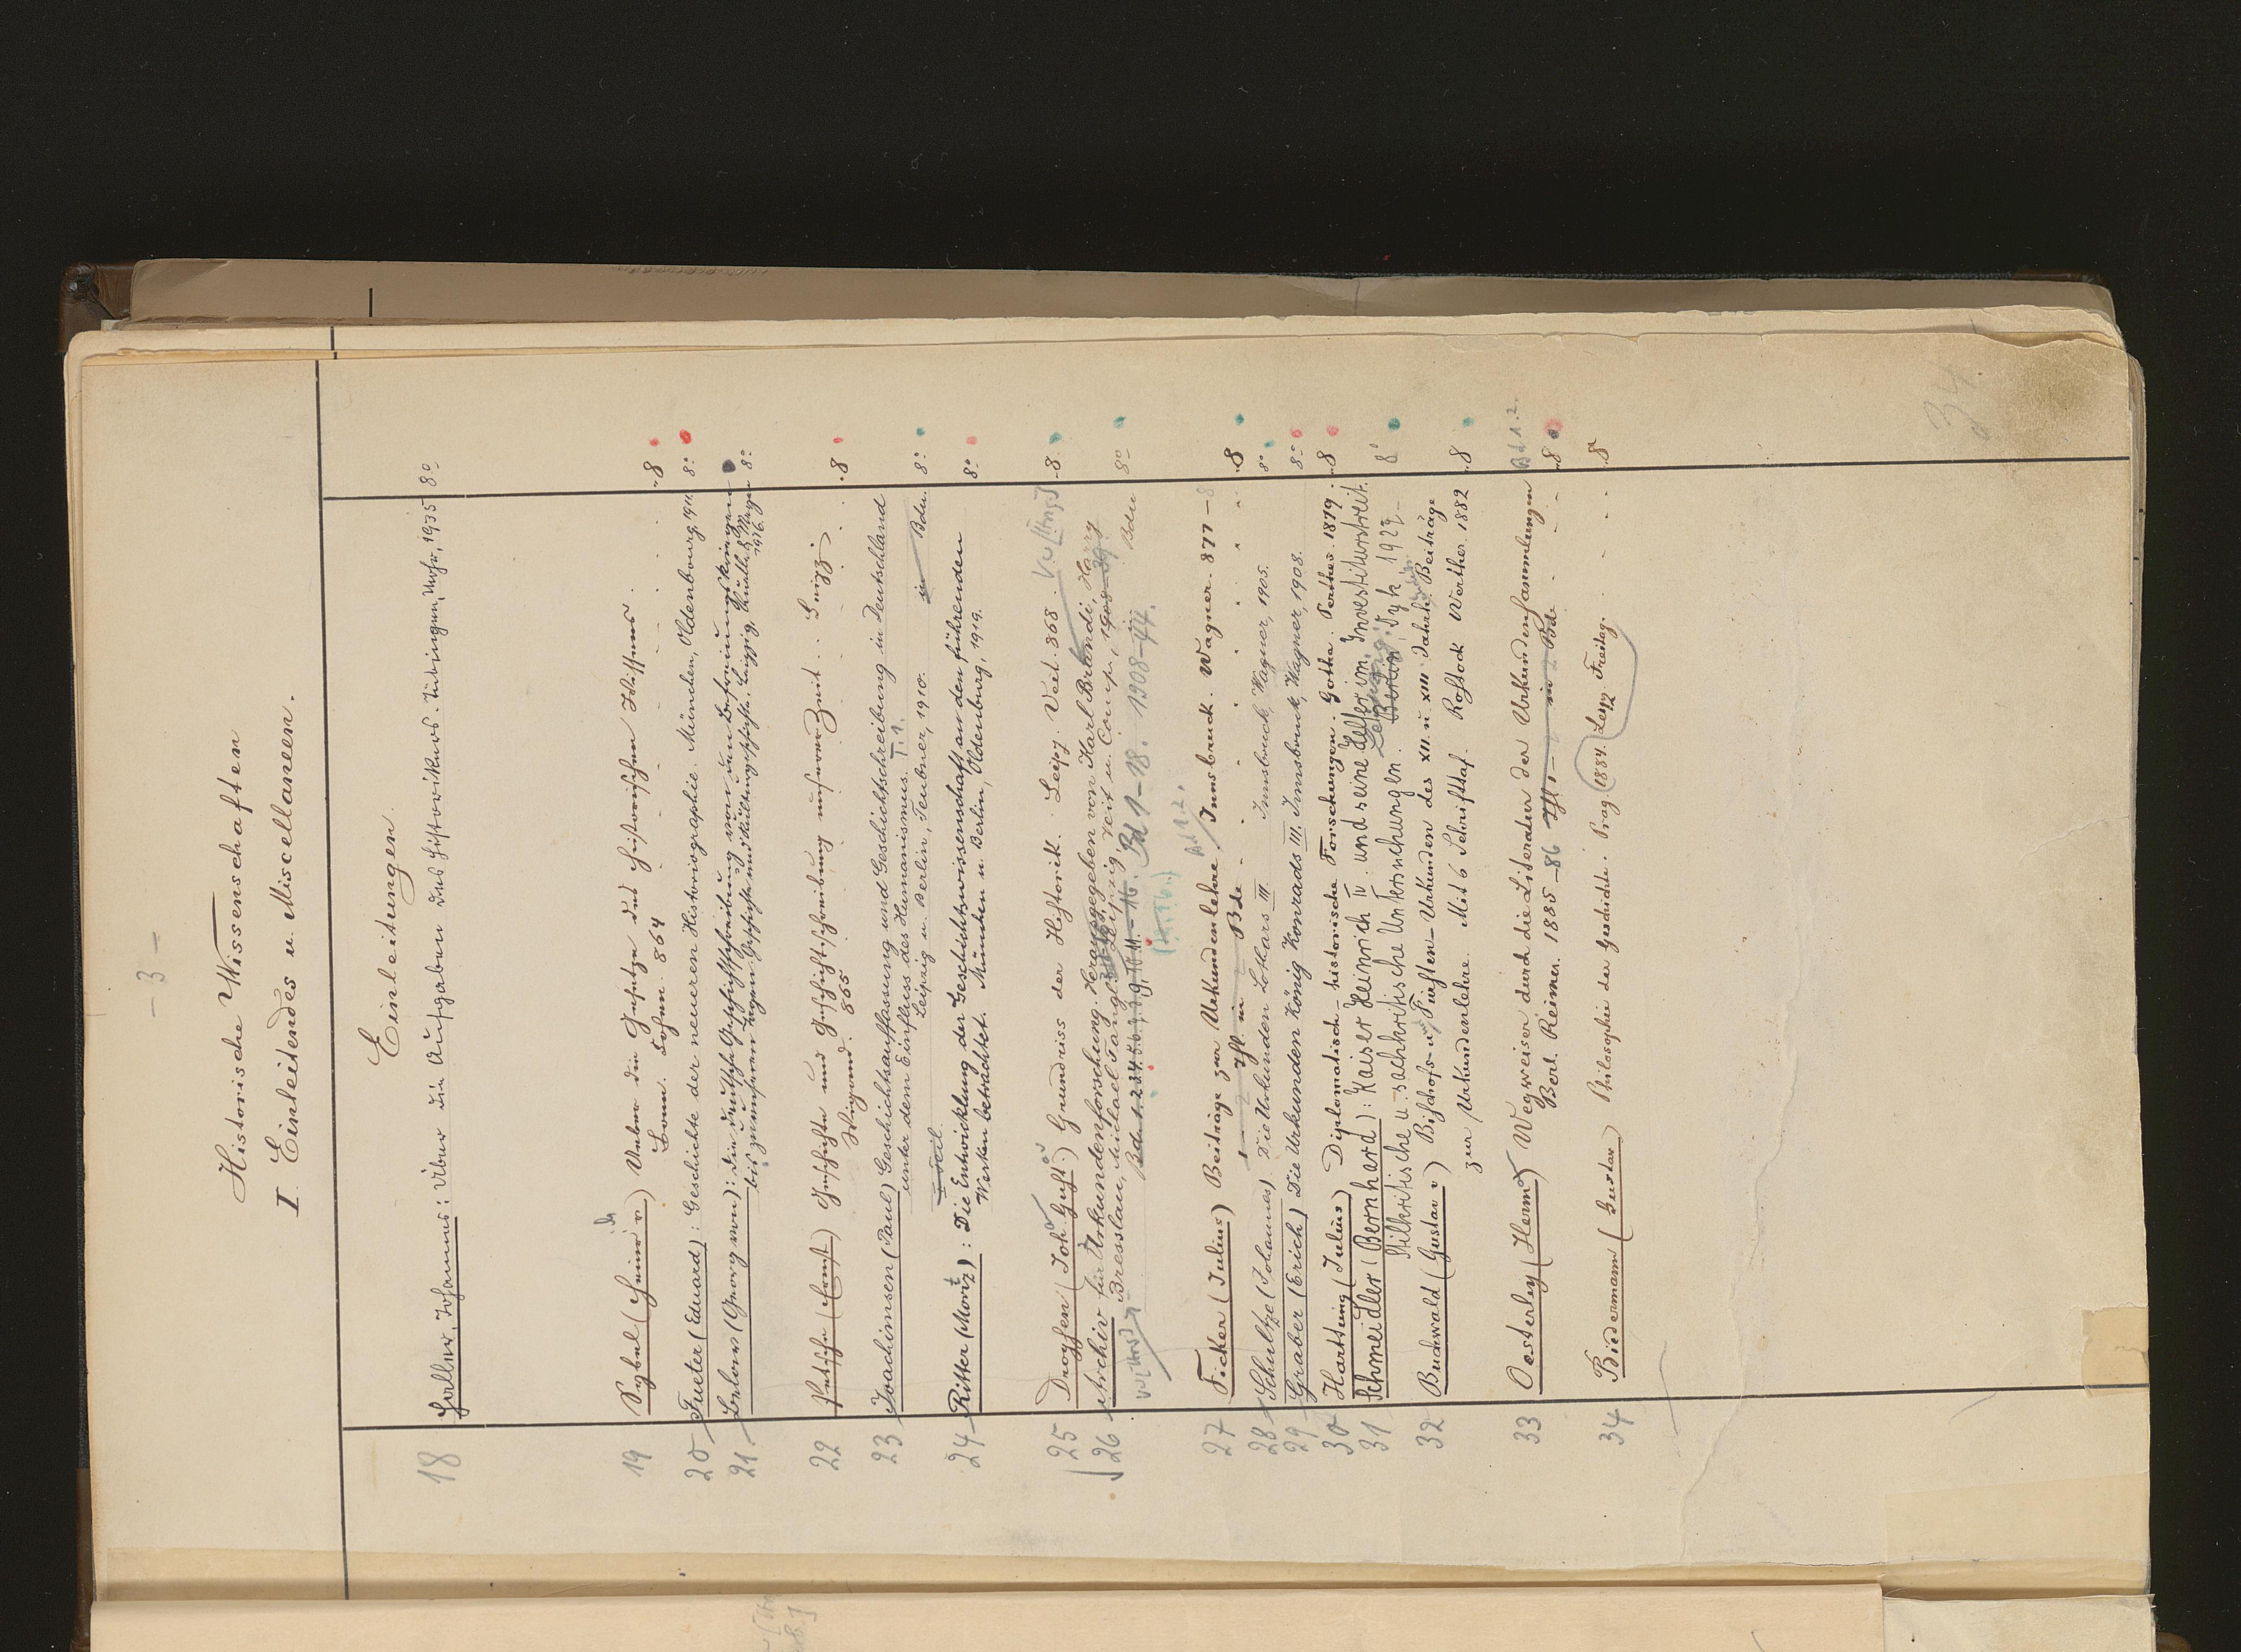 - 3 -
Historische Wissenschaften
I. Einleitendes u. Miscellaneen.
Einleitungen.
18 Haller, Johannes: Über die Aufgaben des Historikers. Tübingen, Mohr, 1935 8°
19 Sybel (Heinr v) Ueber die Gesetze des historischen Wissens. 8
Bonn. Cohn. 864
20 Fueter (Eduard): Geschichte der neueren Historiographie. München, Oldenbourg, 1911. 8°
21 Below (Georg von): Die deutsche Geschichtschreibung von den Befreiungskriegen
bis zu unseren Tagen. Geschichte und Kulturgeschichte. Leipzig, Quelle & Meyer 8°
1916.
22 (Ernst) Geschichte und Geschichtschreibung unserer Zeit. Leipzig. 8
Wigand. 855
23 Joachimsen (Paul) Geschichtsauffassung und Geschichtschreibung in Deutschland
unter dem Einfluss des Humanismus. T. 1. in Bden. 8°
Leipzig u. Berlin, Teubner, 1910.
24 Ritter (Moritz): Die Entwicklung der Geschichtswissenschaft an den führenden 8°
Werken betrachtet. München u. Berlin, Oldenburg, 1919.
25 Droysen (Joh Gust) Grundriss der Historik. Leipz. Veit. 868. 8
26 Archiv für Urkundenforschung. Herausgegeben von Karl Brandi, Harry
Bresslau, Michael Tangl. Leipzig, Veit u. Comp., 1908 Bden 8°
Bd 1. 2. 3. 4. 5. 6. 7. 8. 9. 10. 11. - 16. Bd 1-18. 1908-44.
27 Ficker (Julius) Beiträge zur Urkundenlehre Bd 1.2. Innsbruck. Wagner. 877-8
1 - 2 Hft. in 2 Bde 8
28 Schultze (Johannes) Die Urkunden Lothars III. Innsbruck, Wagner, 1905. 8°
29 Graber (Erich) Die Urkunden König Konrads III. Innsbruck, Wagner, 1908. 8°
30 Harttung (Julius) Diplomatisch-historische Forschungen. Gotha. Perthes. 1879. 8
31 Schmeidler (Bernhard): Kaiser Heinrich IV. und seine Helfer im Investiturstreit.
Stilkritische u. sachkritische Untersuchungen. Berlin Leipzig: Dyk, 1927 8°
32 Buchwald (Gustav v) Bischofs- u. Fürsten-Urkunden des XII. u. XIII. Jahrh. Beiträge
zur Urkundenlehre. Mit 6 Schrifttaf. Rostock Werther. 1882 8
33 Oesterley (Herm) Wegweiser durch die Literatur der Urkundensammlungen Bd 1.2.
Berl. Reimer. 1885-86 Thl 1 - 2 in 2 Bde. 8
34 Biedermann (Gustav) Philosophie der Geschichte. Prag (1884. Leipz Freitag. 8
34